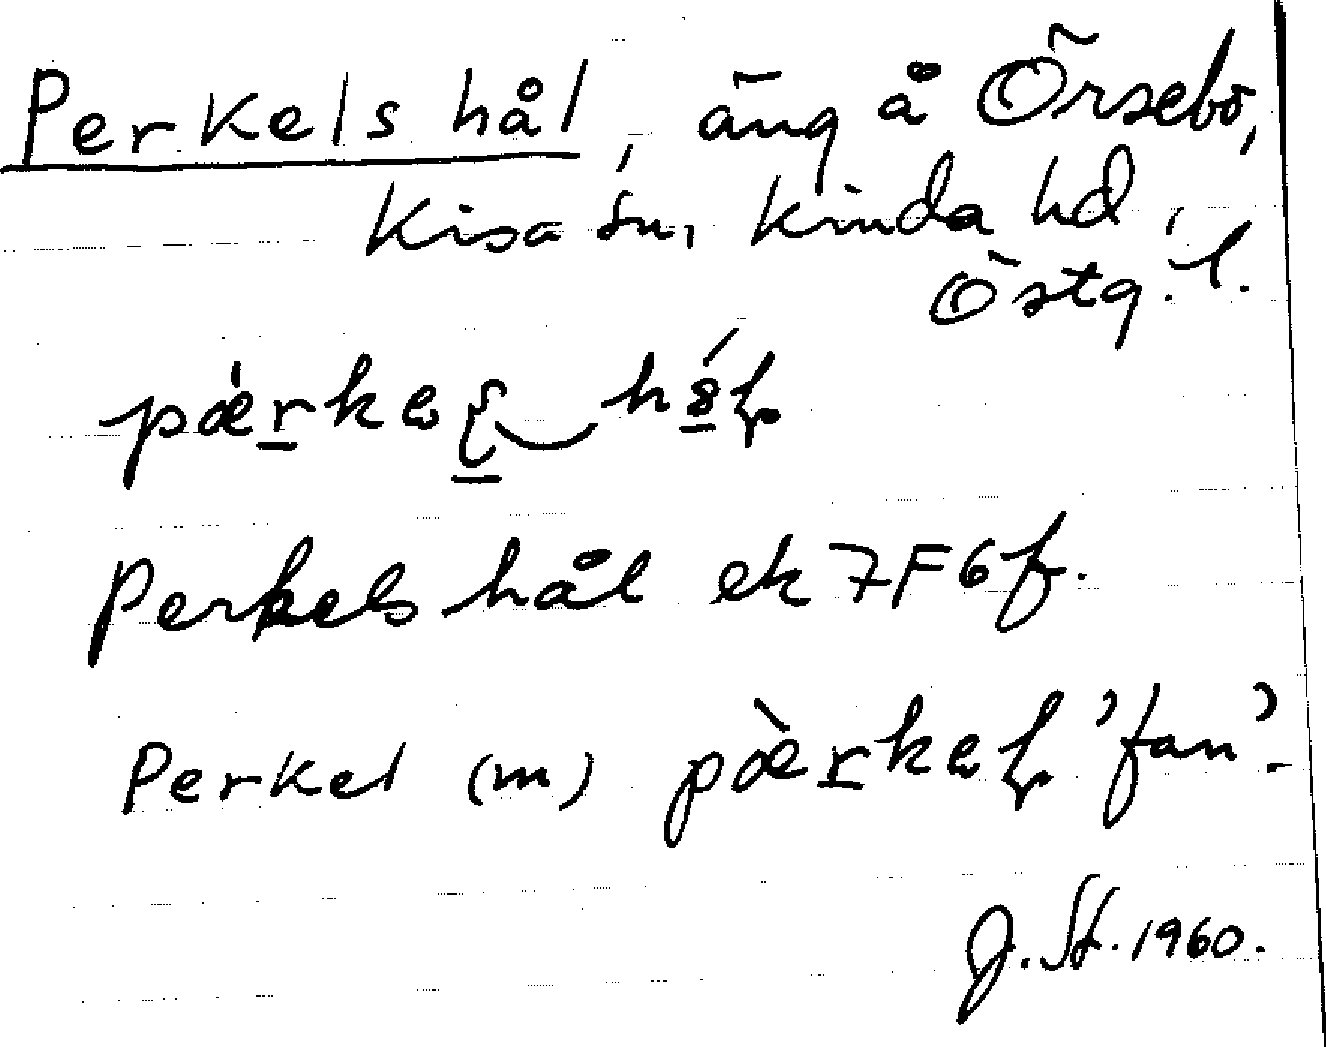 Perkels hål, äng å Örsebo,
Kisa sn, Kinda hd,
Östg. l.
Perkels hål ek 7F6f.
Perkel (m) 'fan'.
J. St. 1960.